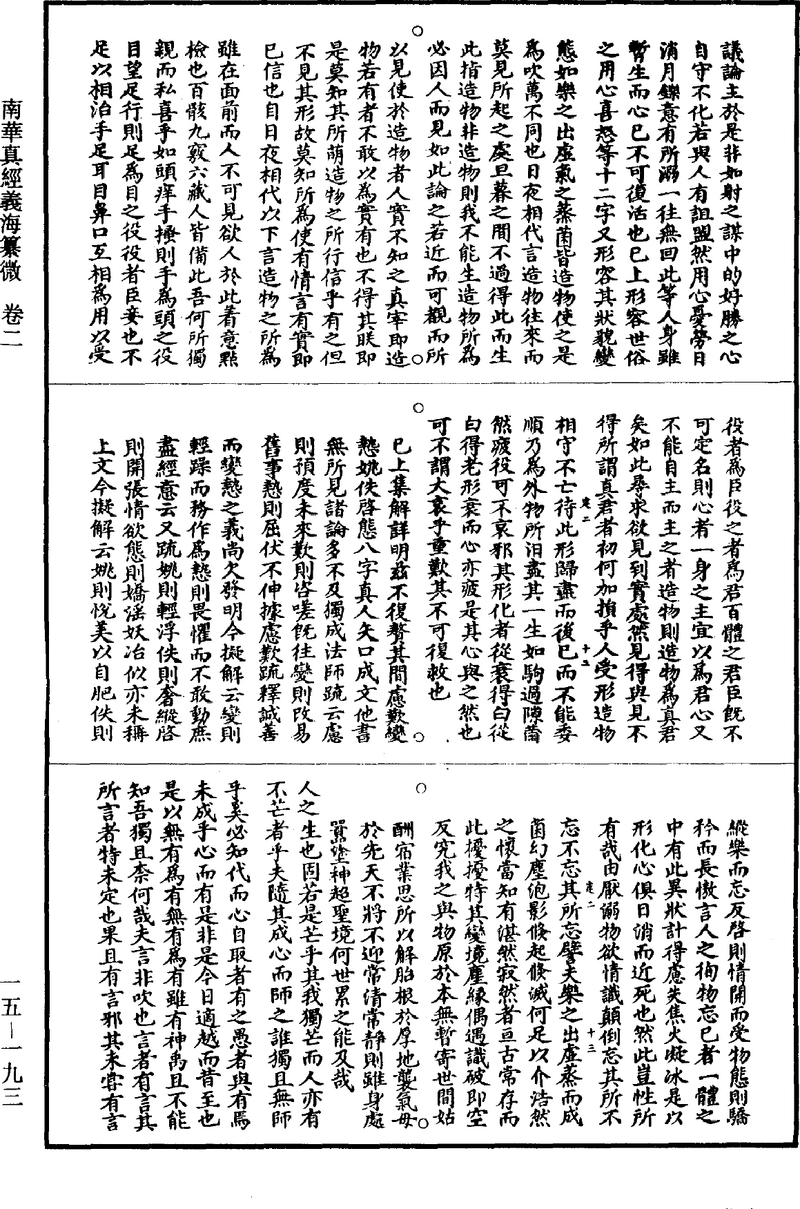 南華真經義海纂微　卷二
一五－一九三
議論主於是非如射之謀中的好勝之心
自守不化若與人有詛盟然用心憂勞日
消月鑠意有所溺一往無回此等人身雖
暫生而心已不可復活也已上形容世俗
之用心喜怒等十二字又形容其狀貌變
態如樂之出虛氣之蒸菌皆造物使之是
為吹萬不同也日夜相代言造物往來而
莫見所起之處旦暮之間不過得此而生
此指造物非造物則我不能生造物所為
必因人而見如此論之若近而可觀而所
以見使於造物者人實不知之真宰即造
物若有者不敢以為實有也不得其眹即
是莫知其所萌造物之所行信乎有之但
不見其形故莫知所為使有情言有實即
已信也自日夜相代以下言造物之所為
雖在面前而人不可見欲人於此着意點
檢也百骸九竅六藏人皆備此吾何所獨
親而私喜乎如頭痒手搔則手為頭之役
目望足行則足為目之役役者臣妾也不
足以相治手足耳目鼻口互相為用以受
役者為臣役之者為君百體之君臣既不
可定名則心者一身之主宜以為君心又
不能自主而主之者造物則造物為真君
矣如此尋求欲見到實處然見得與見不
得所謂真君者初何加損乎人受形造物
相守不亡待此形歸盡而後已而不能委
順乃為外物所汨盡其一生如駒過隙薾
然疲役可不哀邪其形化者從衰得白從
白得老形衰而心亦疲是其心與之然也
可不謂大哀乎重歎其不可復救也
已上集解詳明茲不復贅其間慮歎變
慹姚佚啓態八字真人矢口成文他書
無所見諸論多不及獨成法師䟽云慮
則預度未來歎則咨嗟既往變則改易
舊事慹則屈伏不伸據慮歎䟽釋誠善
而變慹之義尚欠發明今擬解云變則
輕躁而務作為慹則畏懼而不敢動庶
盡經意云又䟽姚則輕浮佚則奢縱啓
則開張情欲態則嬌淫妖冶似亦未稱
上文今擬解云姚則悅美以自肥佚則
縱樂而忘反啓則情開而受物態則驕
矜而長慠言人之徇物忘已者一體之
中有此異狀計得慮失焦火凝冰是以
形化心俱日消而近死也然此豈性所
有哉由厭溺物欲情識顛倒忘其所不
忘不忘其所忘譬夫樂之出虛蒸而成
菌幻塵泡影倏起倏滅何足以介浩然
之懷當知有湛然寂然者亘古常存而
此擾擾特其變境塵緣偶遇識破即空
反究我之與物原於本無暫寄世間姑
酬宿業思所以解胎根於厚地襲氣母
於先天不將不迎常清常靜則雖身處
囂塵神超聖境何世累之能及哉
人之生也固若是芒乎其我獨芒而人亦有
不芒者乎夫隨其成心而師之誰獨且無師
乎奚必知代而心自取者有之愚者與有焉
未成乎心而有是非是今日適越而昔至也
是以無有為有無有為有雖有神禹且不能
知吾獨且柰何哉夫言非吹也言者有言其
所言者特未定也果且有言邪其未甞有言